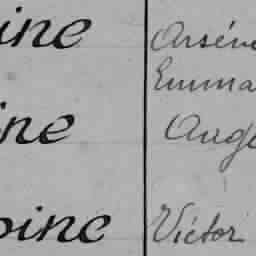 ine Arséne
Emma
ine Ange
oine Victor